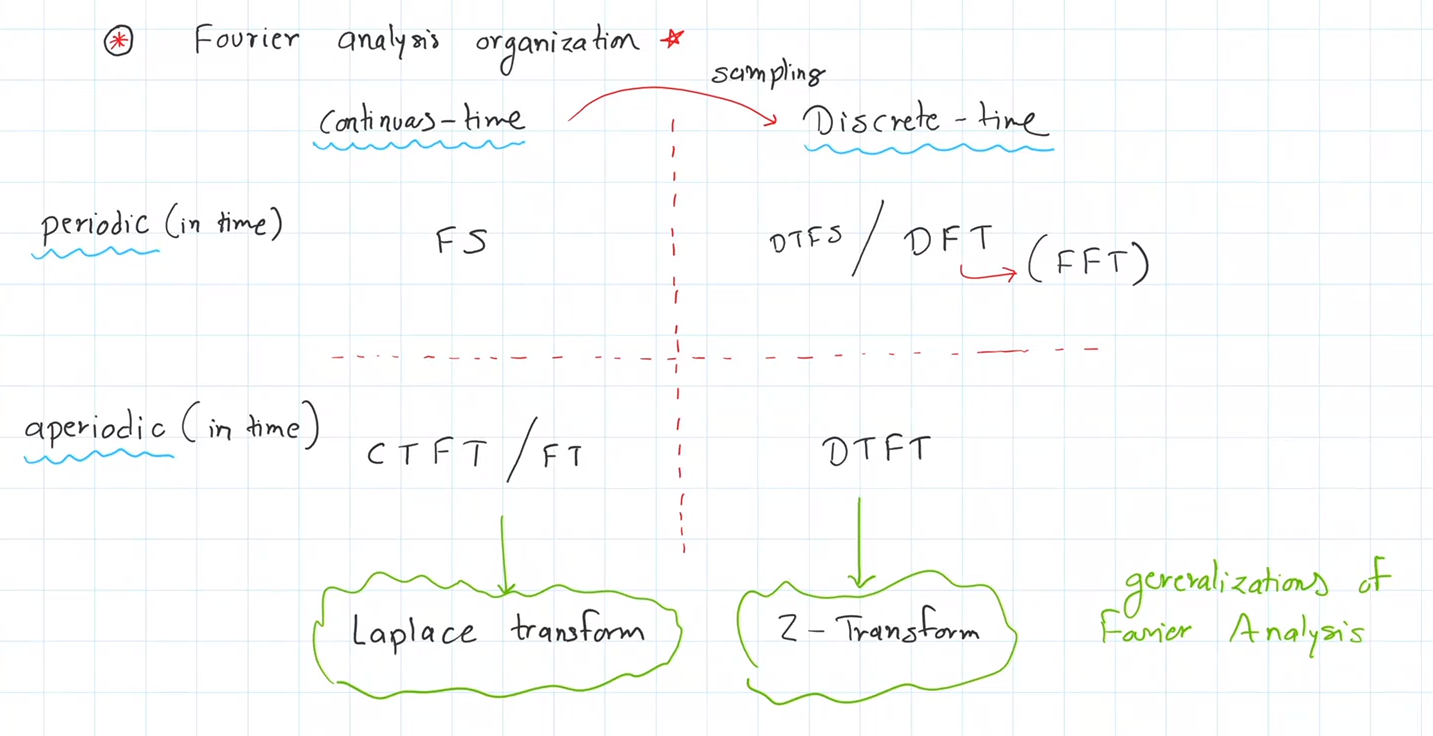 * Fourier analysis organization ☆
sampling
Continuas-time Discrete-time
periodic (in time) FS DTFS / DFT (FFT)
aperiodic (in time) CTFT / FT DTFT
Laplace transform Z-Transform
generalizations of
Fourier Analysis